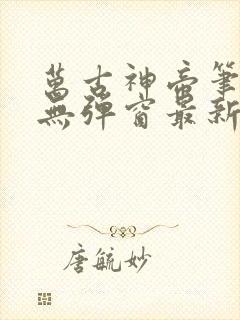 萬古神帝筆
無彈窗最新
唐毓妙